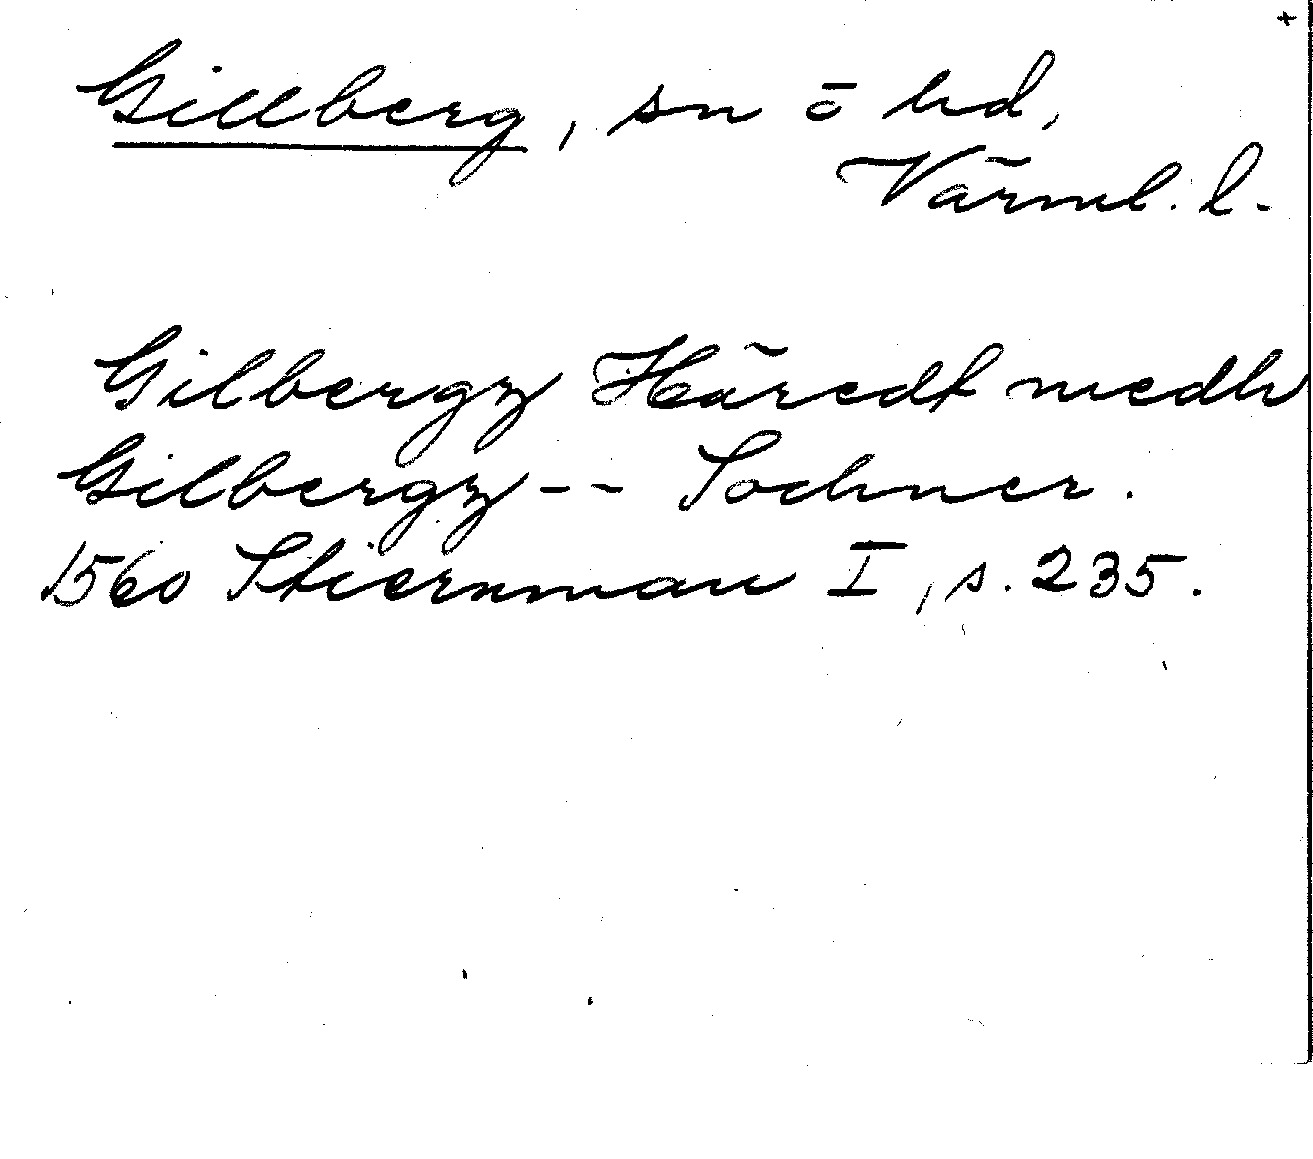 +
Gillberg, sn o hd,
Värml. l.
Gilbergz Häredt medh
Gilbergz -- Sochner.
1560 Stiernman I, s. 235.